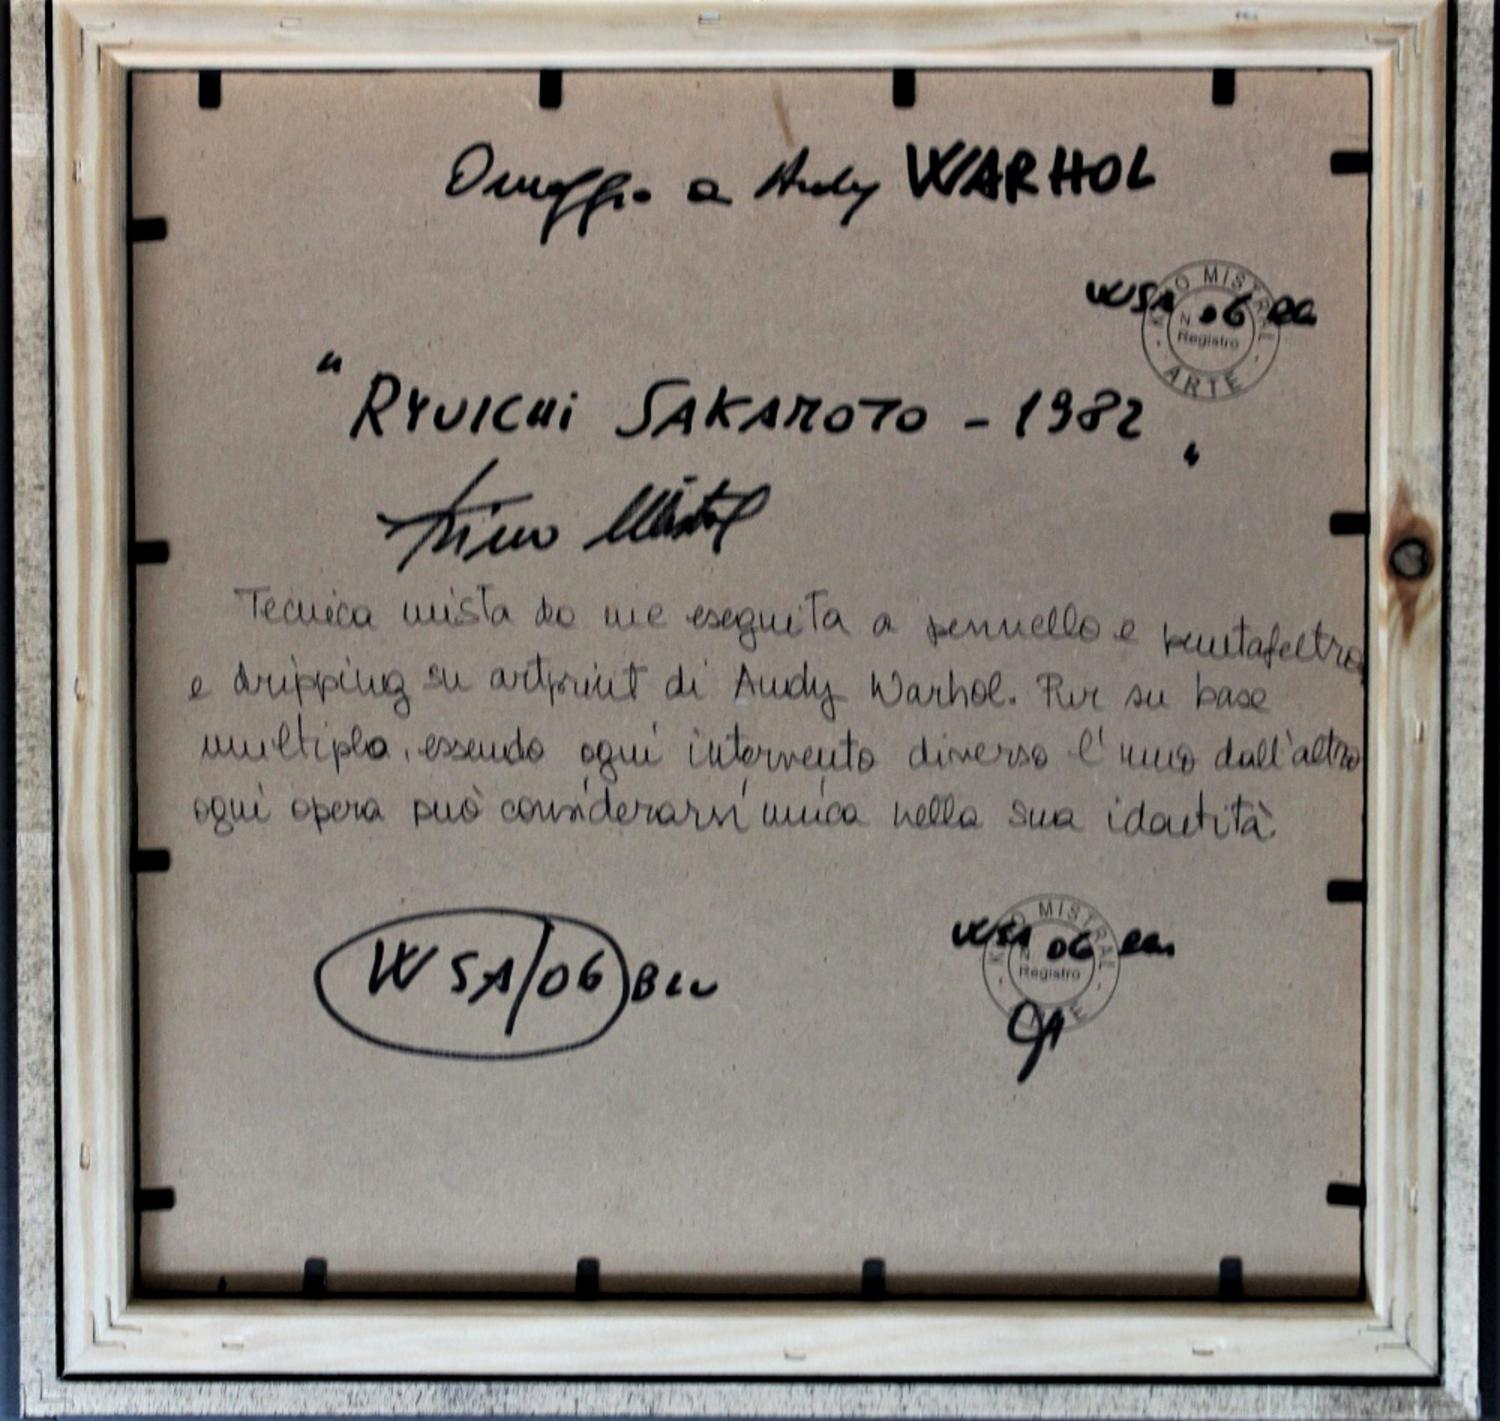 Omaggio a Andy WARHOL
WSA 06
MISTRAL
N.
Registro
ARTE
"RYUICHI SAKAMOTO - 1982"
Kino Mistral
Tecnica mista da me eseguita a pennello e puntafeltro,
e dripping su artprint di Andy Warhol. Pur su base
multipla, essendo ogni intervento diverso l'uno dall'altro
ogni opera può considerarsi unica nella sua identità.
WSA/06 BLU
WSA 06
MISTRAL
Registro